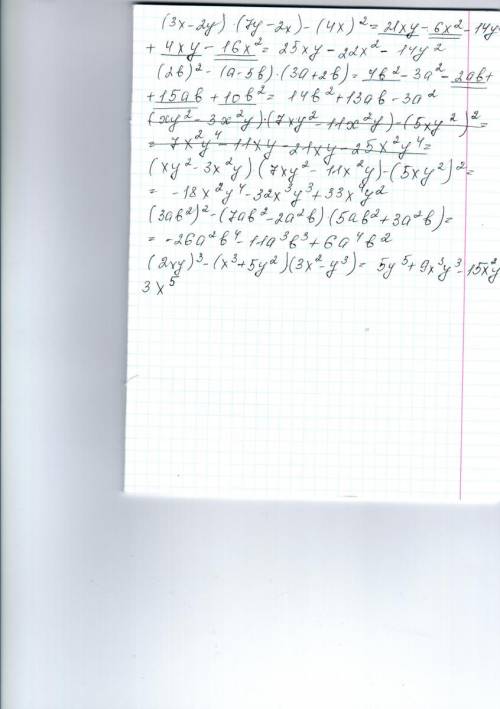 (3x-2y)·(7y-2x)-(4x)²= 21xy-6x²-14y²
+ 4xy-16x²= 25xy-22x²-14y²
(2b)²-(a-5b)·(3a+2b)= 4b²-3a²-2ab+
+15ab+10b²= 14b²+13ab-3a²
(xy²-3x²y)·(7xy²-11x²y)-(5xy²)²=
= 7x²y⁴-11xy-21xy-25x²y⁴=
(xy²-3x²y)(7xy²-11x²y)-(5xy²)²=
= -18x²y⁴-32x³y³+33x⁴y²
(3ab²)²-(7ab²-2a²b)(5ab²+3a²b)=
= -26a²b⁴-11a³b³+6a⁴b²
(2xy)³-(x³+5y²)(3x²-y³)= 5y⁵+9x³y³-15x²y
3x⁵